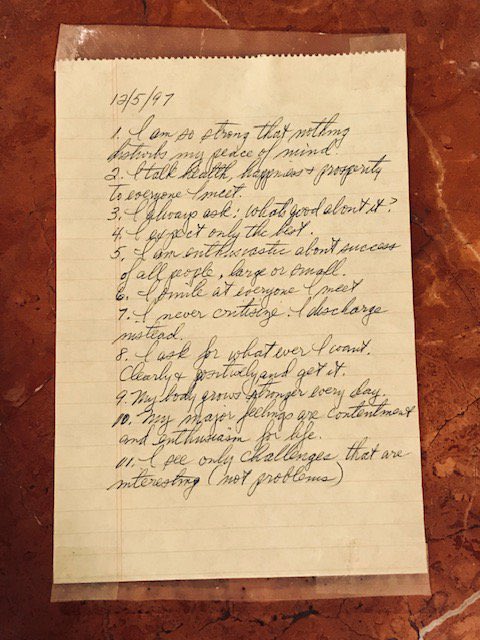 12/5/97
1. I am so strong that nothing
disturbs my peace of mind
2. I talk health, happness + prosperity
to everyone I meet.
3. I always ask: what's good about it?
4. I expect only the best.
5. I am enthusiastic about success
of all people, large or small.
6. I smile at everyone I meet
7. I never critisize. I discharge
instead.
8. I ask for what ever I want.
Clearly + positively and get it.
9. My body grows stronger every day.
10. My major feelings are contentment
and enthusiasm for life.
11. I see only challenges that are
interesting (not problems)